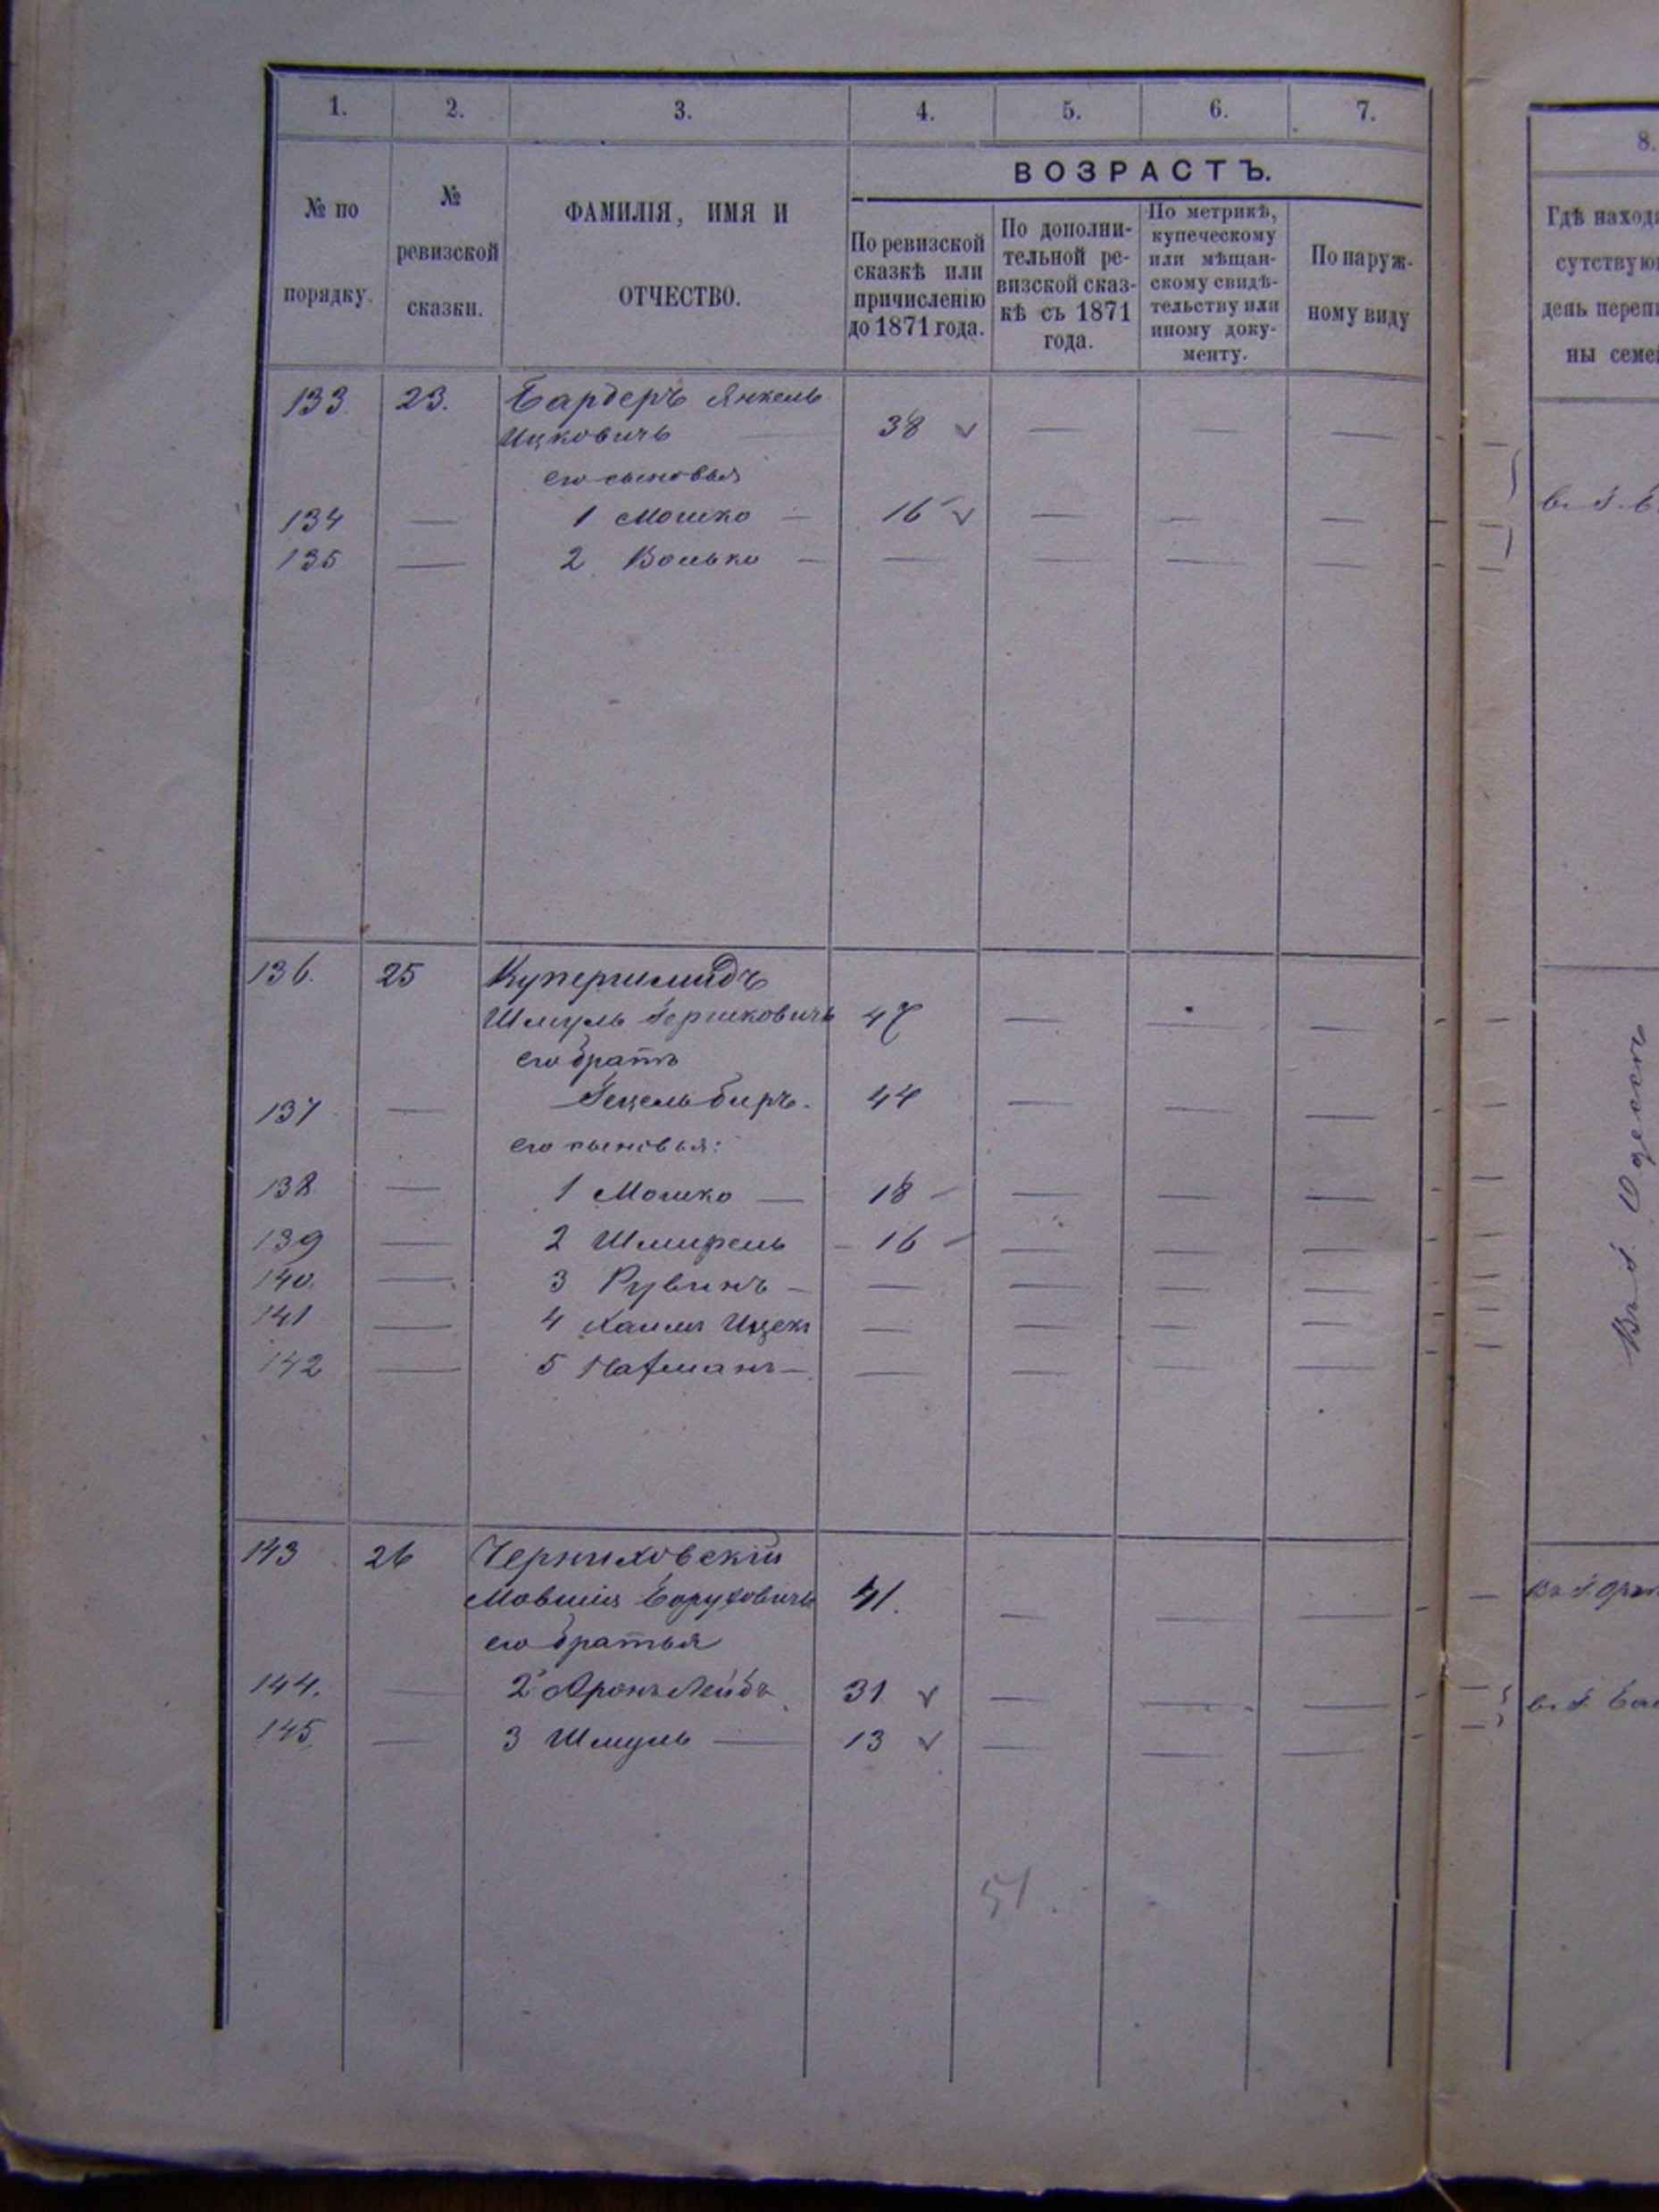 1. 2. 3. 4. 5. 6. 7.
8.
ВОЗРАСТЪ.
№ по порядку.
№ ревизской сказки.
ФАМИЛІЯ, ИМЯ И ОТЧЕСТВО.
По ревизской сказкѣ или причисленію до 1871 года.
По дополни-тельной ре-визской сказ-кѣ съ 1871 года.
По метрикѣ, купеческому или мѣщан-скому свидѣ-тельству или иному доку-менту.
По наруж-ному виду
Гдѣ наход
сутствую
день переп
ны семе
133. 23. Бардеръ Янкель
Ицковичъ 38 √ — — —
его сыновья
134 — 1 Мошко — 16 √ — — —
135 — 2 Волько — — — — —
136. 25 Купершмидъ
Шмуль Гершковичъ 47 — — —
его братъ
137 — Гецель биръ. 44 — — —
его сыновья:
138 — 1 Мошко — 18 — — — —
139 — 2 Шмирель — 16 — — — —
140. — 3 Рувинъ — — — — —
141 — 4 Хаимъ Ицекъ — — — —
142 — 5 Нахманъ — — — — —
Въ г. Одессѣ
143 26 Черниховскій
Мовшия Боруховичъ 41. — — —
его братья
144. — 2 Аронъ Лейбъ 31 √ — — —
145. — 3 Шмуль — 13 √ — — —
51.